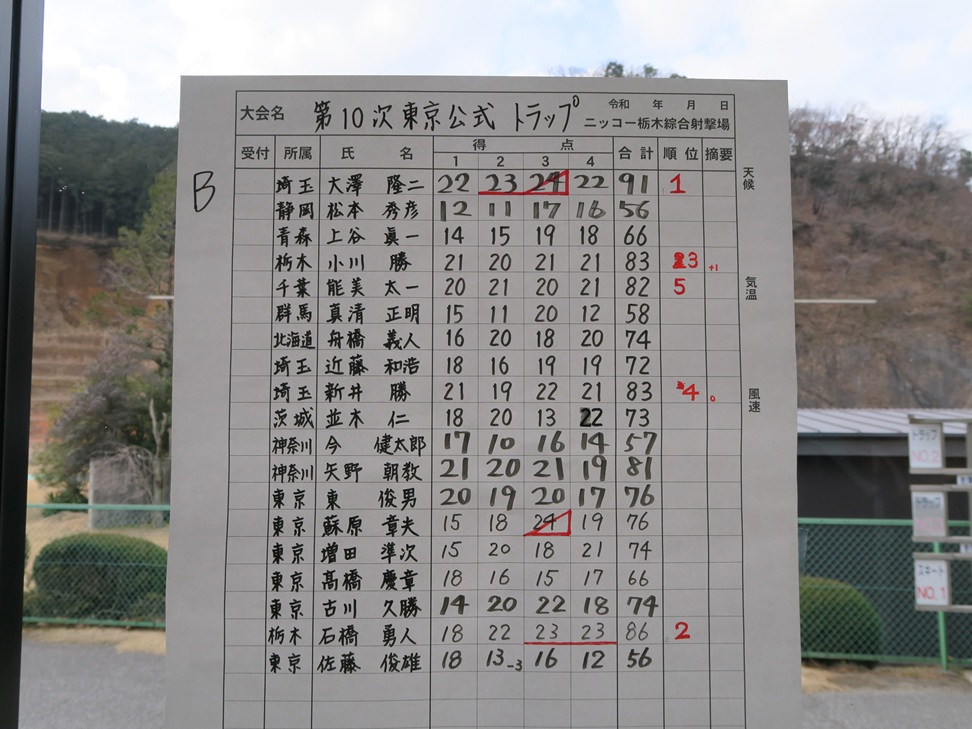 大会名 第10次東京公式 トラップ 令和 年 月 日
ニッコー栃木綜合射撃場
受付 所属 氏 名 得 点 合計 順位 摘要
1 2 3 4
天候
B
埼玉 大澤 隆二 22 23 24 22 91 1
静岡 松本 秀彦 12 11 17 16 56
青森 上谷 眞一 14 15 19 18 66
栃木 小川 勝 21 20 21 21 83 3 +1
気温
千葉 能美 太一 20 21 20 21 82 5
群馬 真清 正明 15 11 20 12 58
北海道 舟橋 義人 16 20 18 20 74
埼玉 近藤 和浩 18 16 19 19 72
埼玉 新井 勝 21 19 22 21 83 4 0
風速
茨城 並木 仁 18 20 13 22 73
神奈川 今 健太郎 17 10 16 14 57
神奈川 矢野 朝教 21 20 21 19 81
東京 東 俊男 20 19 20 17 76
東京 蘇原 章夫 15 18 24 19 76
東京 増田 準次 15 20 18 21 74
東京 髙橋 慶章 18 16 15 17 66
東京 古川 久勝 14 20 22 18 74
栃木 石橋 勇人 18 22 23 23 86 2
東京 佐藤 俊雄 18 13-3 16 12 56
トラップ
NO.2
トラップ
スキート
NO.1